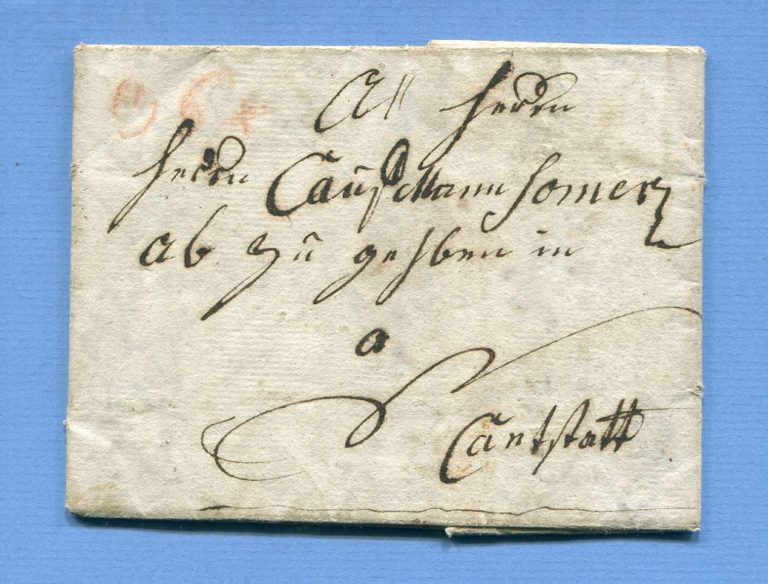 An Herrn
Herrn Caufmann Somer
ab zu gehben in
a
Cantstatt